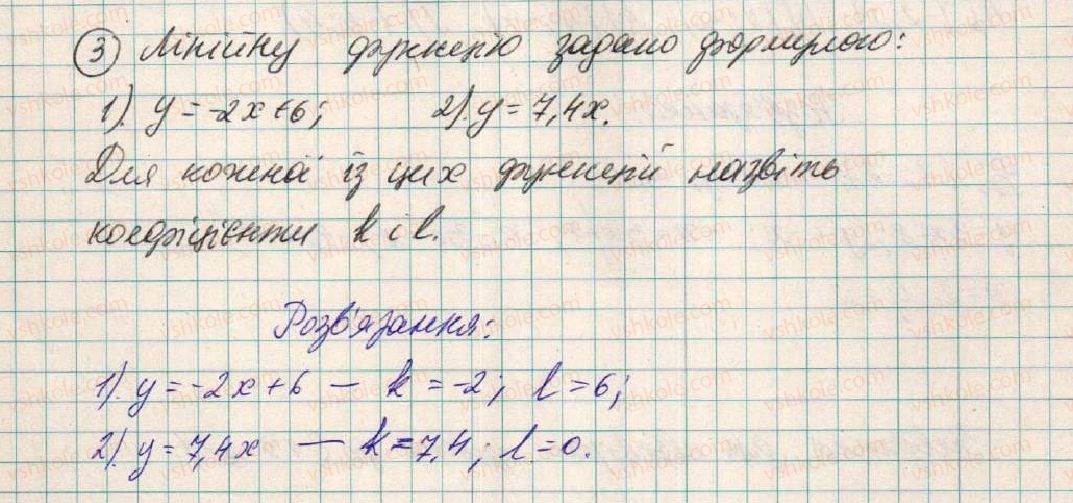 3 Лінійну функцію задано формулою:
1). y = -2x+6; 2). y = 7,4x.
Для кожної із цих функцій назвіть
коефіцієнти k і l.
Розв'язання:
1). y = -2x+6 — k = -2; l = 6;
2). y = 7,4x — k = 7,4; l = 0.